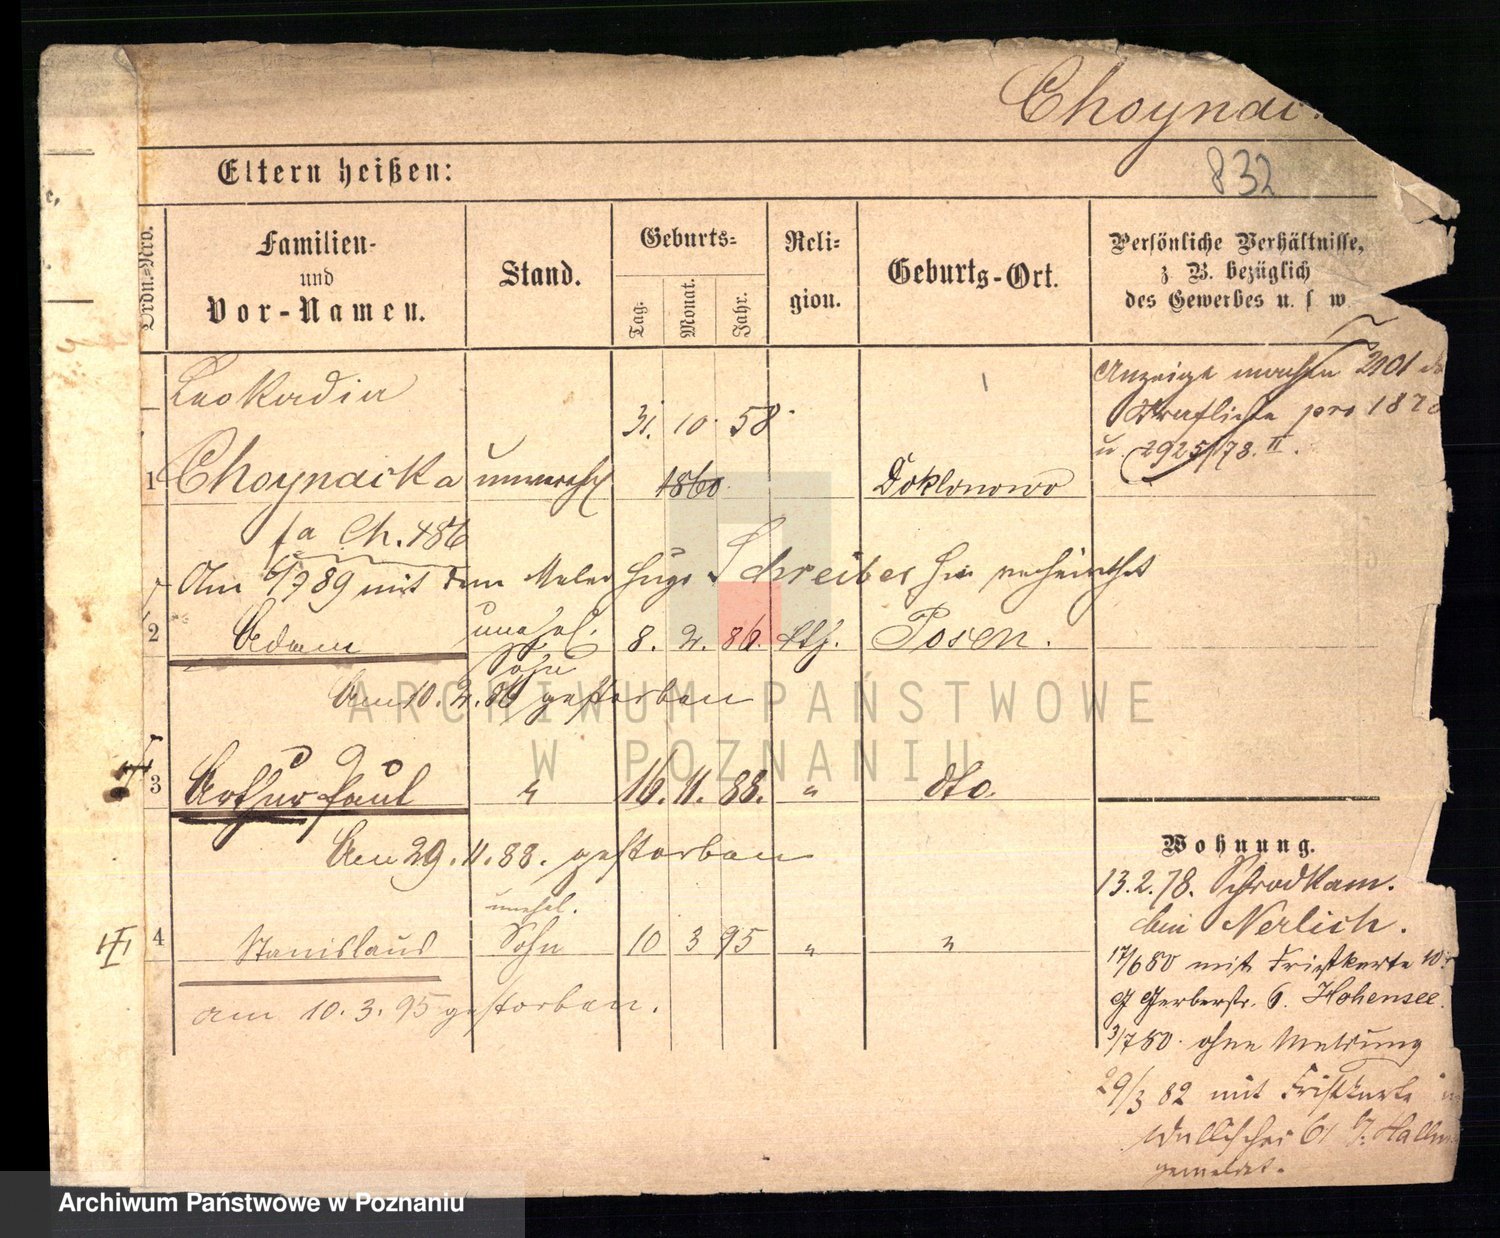 Choynac
832
Eltern heißen:
Ordn.=Nro.
Familien-
und
Vor-Namen.
Stand.
Geburts=
Tag.
Monat.
Jahr.
Reli=
gion.
Geburts-Ort.
Persönliche Verhältnisse,
z. B. bezüglich
des Gewerbes u. s w
Leokadia
31. 10. 58
1 Choynacka unverehl 1860. Doklonowo
Anzeige machen 2901
pro 187
u 2925/78. II.
fa Ch. 486
Am 89 mit dem Maler Hugo Schreiber hier verheirathet
2 Adam unehel. Sohn 8. 2. 86. kth. Posen.
Am 10. 2. 86 gestorben
3 Arthur Paul " 16. 11. 88. " dto.
Am 29. 11. 88. gestorben
4 Stanislaus unehel. Sohn 10 3 95 " "
am 10. 3. 95 gestorben.
Wohnung.
13. 2. 78. Schrodkam.
bei Nerlich.
17/6 80 mit Fristkarte
Gerberstr. 6. Hohensee
3/7 80. ohne Meldung
29/3 82 mit Fristkarte
Wallischei 61
gemeldet.
ARCHIWUM PAŃSTWOWE
W POZNANIU
Archiwum Państwowe w Poznaniu